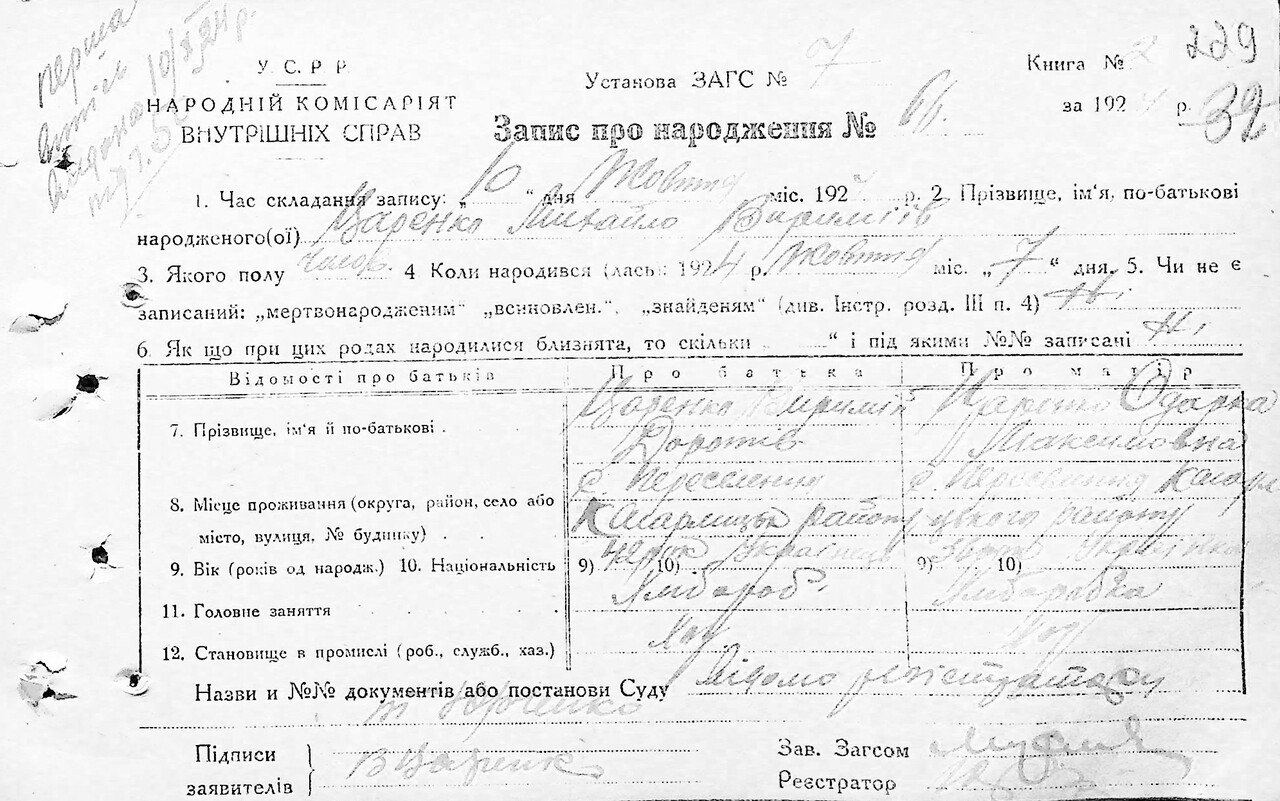 перша
10/X 24 р.
У. С. Р. Р.
НАРОДНІЙ КОМІСАРІЯТ
ВНУТРІШНІХ СПРАВ
Установа ЗАГС № 7
Книга № 2 229
за 1924 р. 32
Запис про народження № 66.
1. Час складання запису: „10“ дня Жовтня міс. 1924 р. 2. Прізвище, ім'я, по-батькові
народженого(ої) Царенко Михайло Вириміїв
3. Якого полу чолов. 4 Коли народився (лась) 1924 р. Жовтня міс. „7“ дня. 5. Чи не є
записаний: „мертвонародженим“ „всиновлен.“, „знайденям“ (див. Інстр. розд. III п. 4) Ні
6. Як що при цих родах народилися близнята, то скільки „ “ і під якими №№ записані Ні
Відомості про батьків Про батька Про матір
7. Прізвище, ім'я й по-батькові . Царенко Виримій Царенко Одарка
Доротів Максимовна
8. Місце проживання (округа, район, село або с. Переселення с. Переселення Кагарли-
місто, вулиця, № будинку) . . Кагарлицьк району цького району
9. Вік (років од народж.) 10. Національність 9) 10) Українець 9) 10) Українка
11. Головне заняття . . . . Хлібороб. Хліборобка
12. Становище в промислі (роб., служб., хаз.)
Назви и №№ документів або постанови Суду Відомо реєстратору
т Юрченко
Підписи } В Царенко
заявителів
Зав. Загсом
Реєстратор